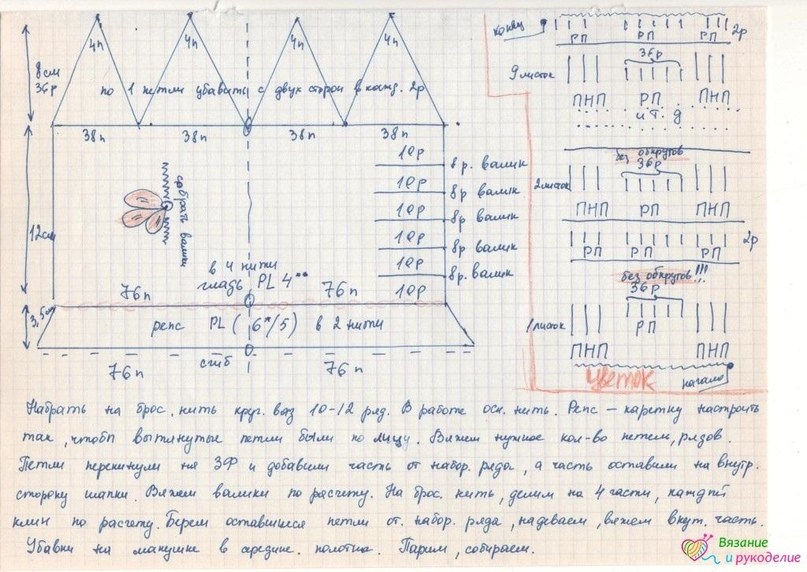 4п 4п 4п 4п
8см
36р
по 1 петли убавить с двух сторон в кажд. 2р
38п 38п 38п 38п
12см
10р
8р. валик
10р
8р валик
10р
8р валик
10р
8р валик
10р
8р. валик
10р
собрать валики
в 4 нити
гладь PL 4°°
76п 76п
3,5см
репс PL ( 6*/5) в 2 нити
сгиб
76п 76п
конец
РП РП РП 2р
36р
9листок
ПНП РП ПНП
и т. д
без обкрутов
36р
2листок
ПНП РП ПНП
РП РП РП 2р
без обкрутов!!!
36р
1листок
РП
ПНП ПНП
Цветок
начало
Набрать на брос. нить круг. вяз 10-12 ряд. В работе осн. нить. Репс – каретку настроить
так, чтобы вытянутые петли были по лицу. Вяжем нужное кол-во петель, рядов.
Петли перекинули на ЗФ и добавили часть от набор. ряда, а часть оставили на внутр.
сторону шапки. Вяжем валики по расчету. На брос. нить, делим на 4 части, каждый
клин по расчету. Берем оставшиеся петли от. набор. ряда, надеваем, вяжем внут. часть.
Убавки на макушке в середине. полотна. Парим, собираем.
Вязание
и рукоделие